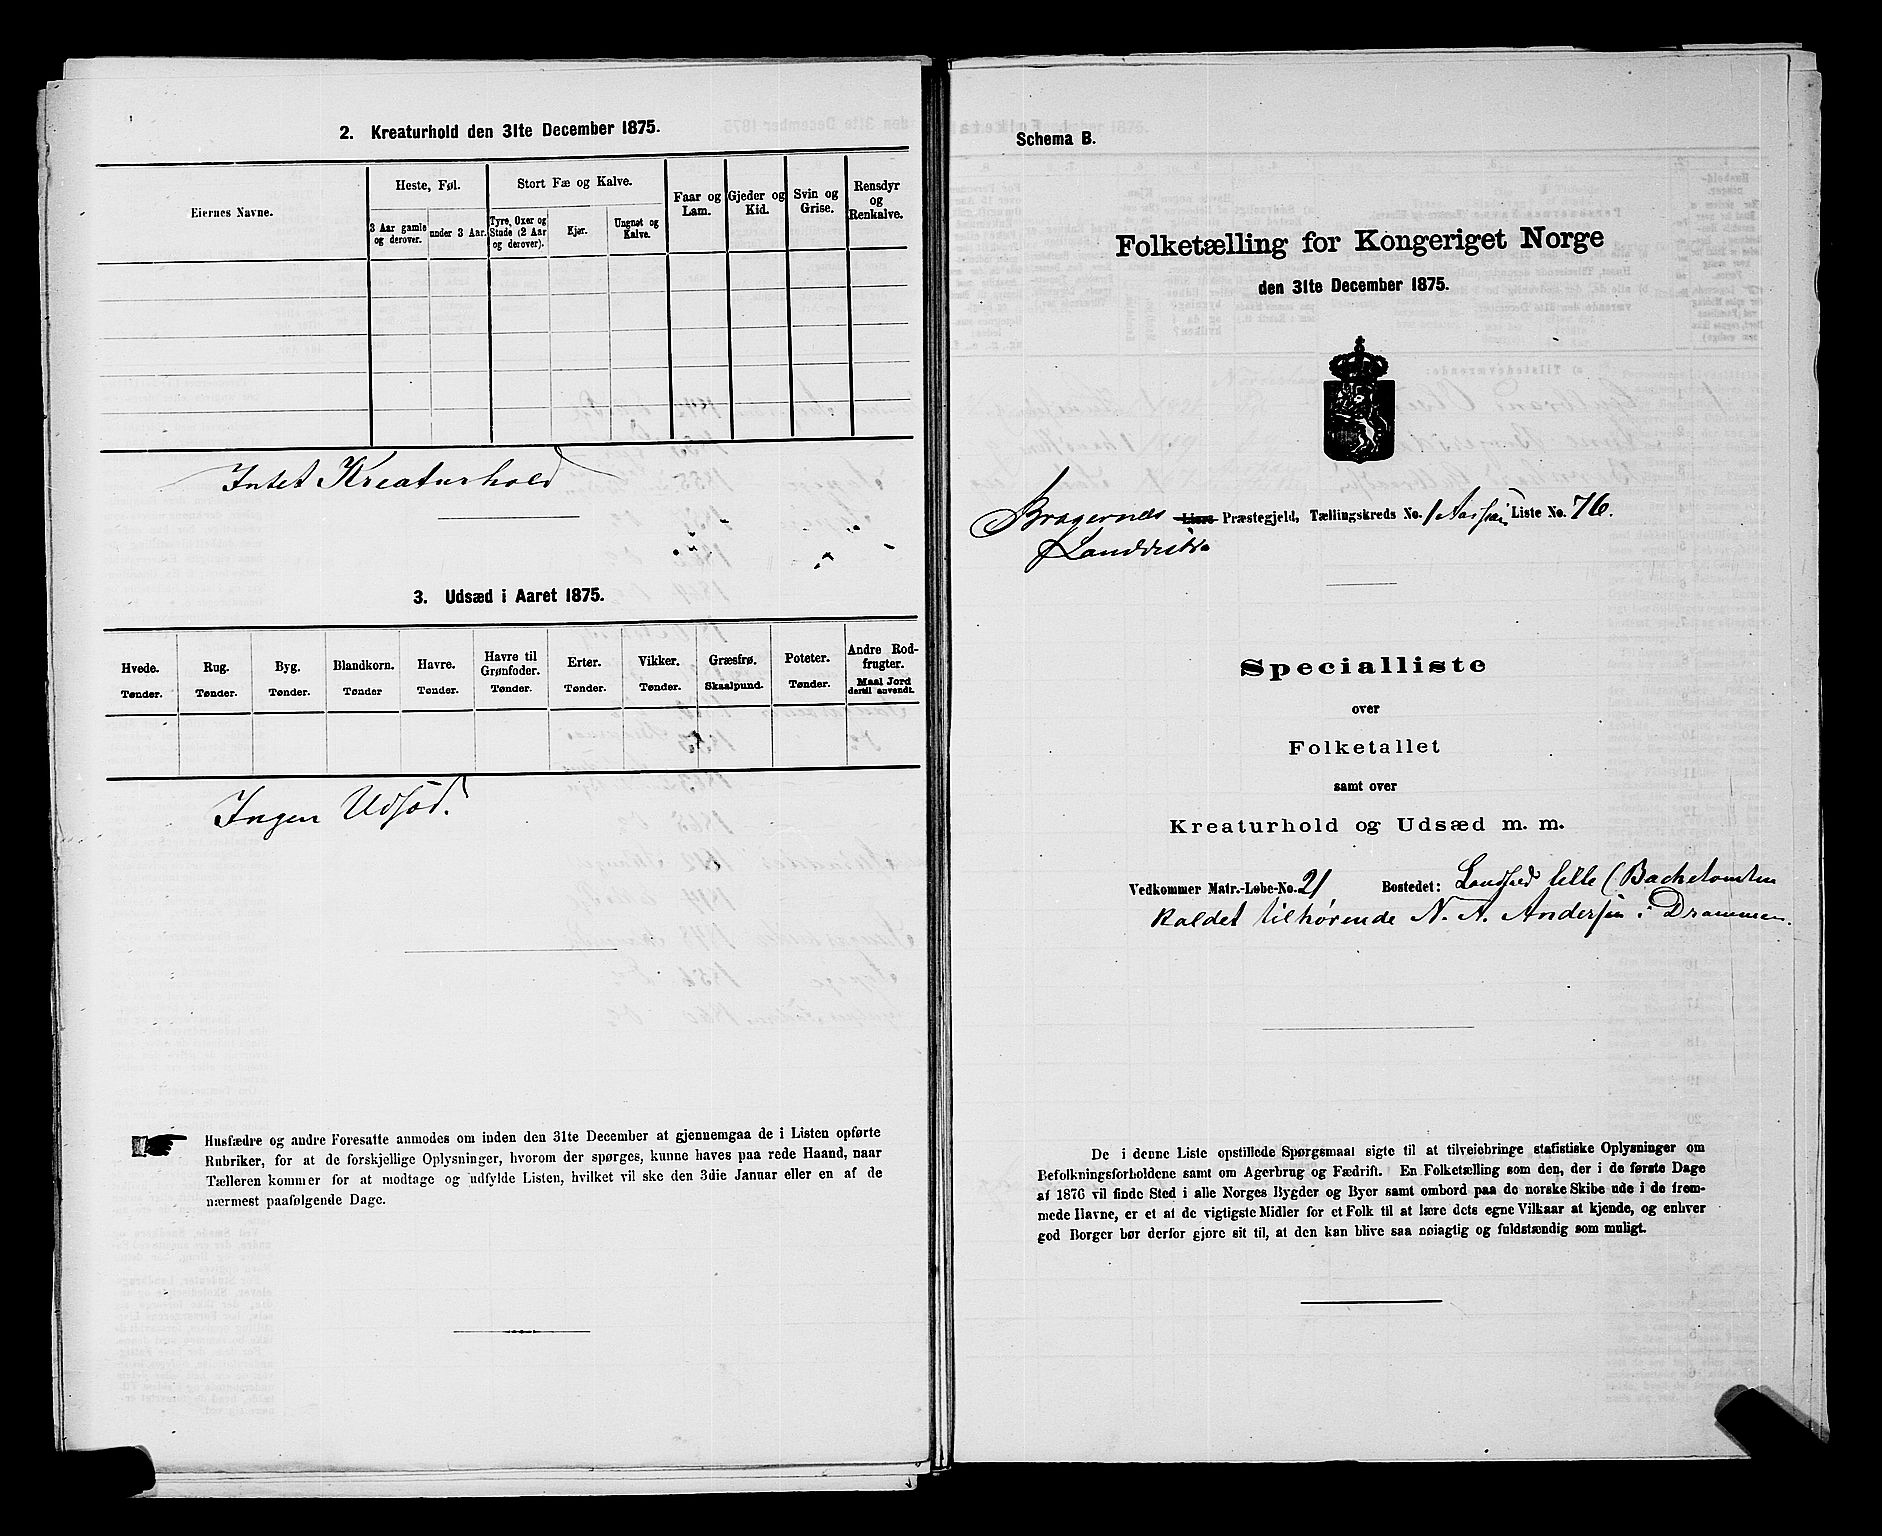 2. Kreaturhold den 31te December 1875.
Eiernes Navne.
Heste, Føl.
Stort Fæ og Kalve.
Faar og Lam.
Gjeder og Kid.
Svin og Grise.
Rensdyr og Renkalve.
3 Aar gamle og derover.
under 3 Aar.
Tyre, Oxer og Stude (2 Aar og derover).
Kjør.
Ungnøt og Kalve.
Intet Kreaturhold
3. Udsæd i Aaret 1875.
Hvede. Tønder.
Rug. Tønder.
Byg. Tønder.
Blandkorn. Tønder
Havre. Tønder.
Havre til Grønfoder. Tønder.
Erter. Tønder.
Vikker. Tønder.
Græsfrø. Skaalpund.
Poteter. Tønder.
Andre Rodfrugter. Maal Jord dertil anvendt.
Ingen Udsæd.
Husfædre og andre Foresatte anmodes om inden den 31te December at gjennemgaa de i Listen opførte
Rubriker, for at de forskjellige Oplysninger, hvorom der spørges, kunne haves paa rede Haand, naar
Tælleren kommer for at modtage og udfylde Listen, hvilket vil ske den 3die Januar eller en af de
nærmest paafølgende Dage.
Schema B.
Folketælling for Kongeriget Norge
den 31te December 1875.
Bragernes Liers Præstegjeld, Tællingskreds No. 1 Liste No. 76.
Landdistr.
Specialliste
over
Folketallet
samt over
Kreaturhold og Udsæd m. m.
Vedkommer Matr.-Løbe-No. 21 Bostedet: Landfald lille (Bachetomten
kaldet tilhørende N. A. Andersen i Drammen.
De i denne Liste opstillede Spørgsmaal sigte til at tilveiebringe statistiske Oplysninger om
Befolkningsforholdene samt om Agerbrug og Fædrift. En Folketælling som den, der i de første Dage
af 1876 vil finde Sted i alle Norges Bygder og Byer samt ombord paa de norske Skibe ude i de fremmede
Havne, er et af de vigtigste Midler for et Folk til at lære dets egne Vilkaar at kjende, og enhver
god Borger bør derfor gjøre sit til, at den kan blive saa nøiagtig og fuldstændig som muligt.